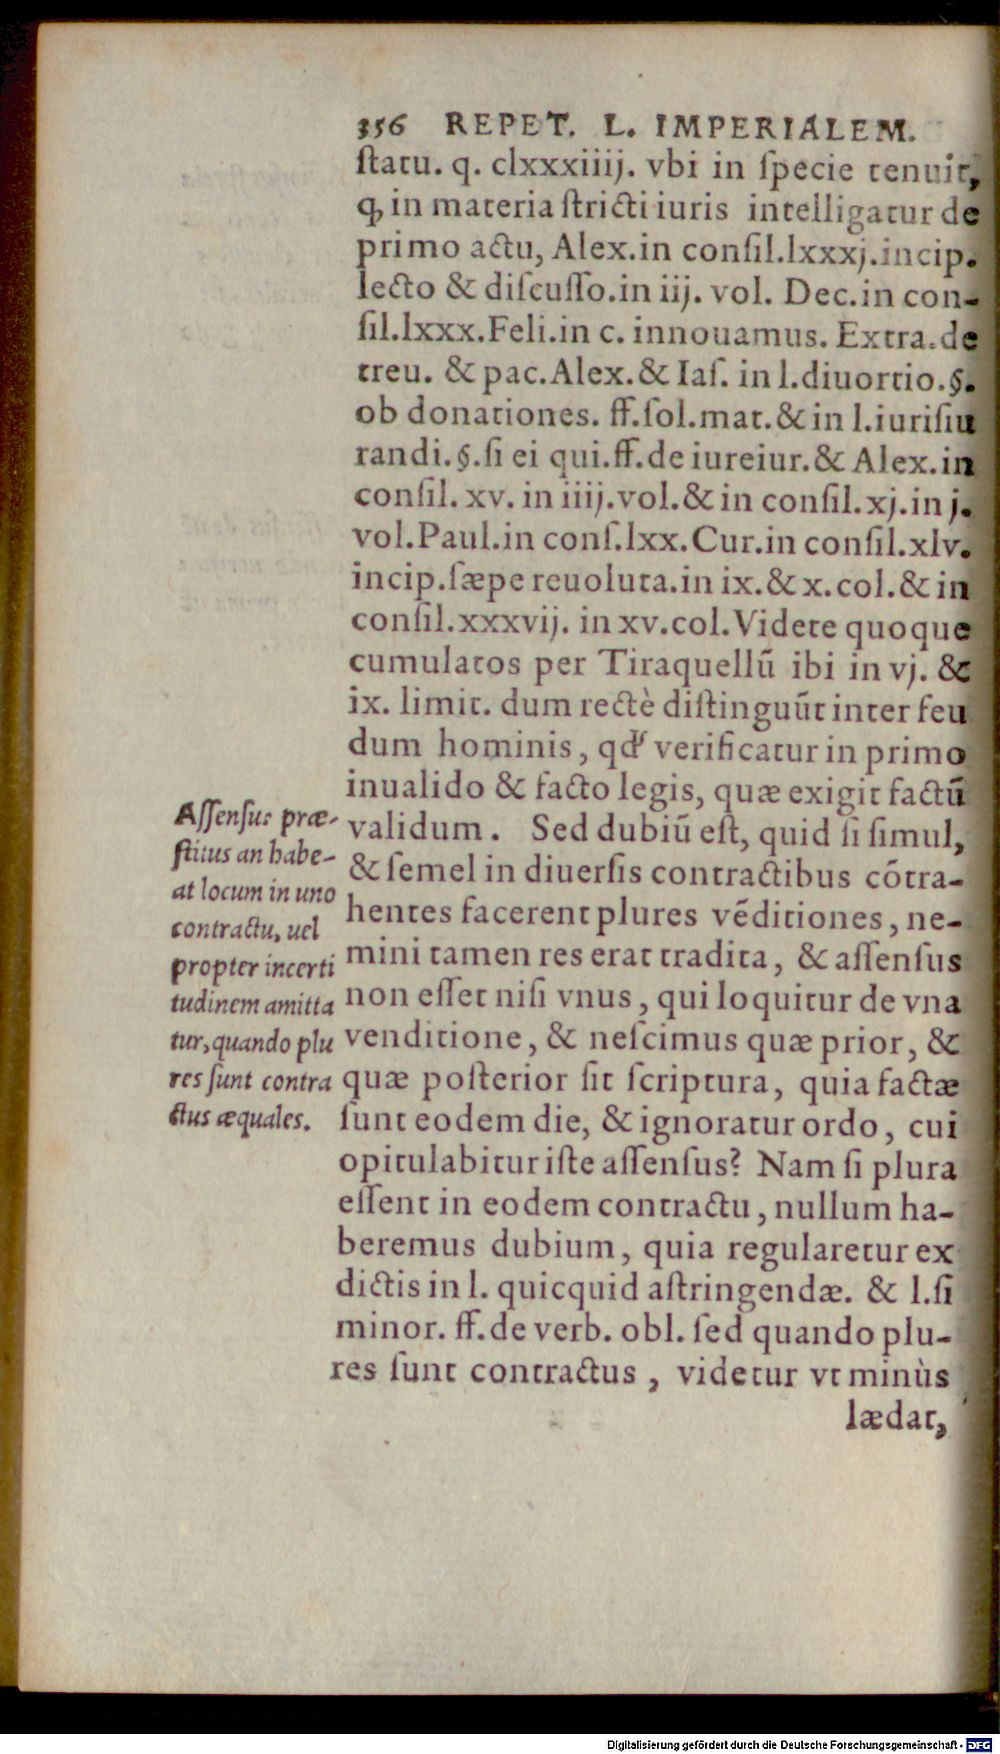 356 REPET. L. IMPERIALEM.
ſtatu. q. clxxxiiij. vbi in ſpecie tenuit,
ꝙ in materia ſtricti iuris intelligatur de
primo actu, Alex.in conſil.lxxxj.incip.
lecto & diſcuſſo.in iij. vol. Dec.in con-
ſil.lxxx.Feli.in c. innouamus. Extra.de
treu. & pac.Alex.& Iaſ. in l.diuortio.§.
ob donationes. ff.ſol.mat.& in l.iuriſiu
randi.§.ſi ei qui.ff.de iureiur.& Alex.in
conſil. xv. in iiij.vol.& in conſil.xj.in j.
vol.Paul.in conſ.lxx.Cur.in conſil.xlv.
incip.ſæpe reuoluta.in ix.& x.col.& in
conſil.xxxvij. in xv.col.Videte quoque
cumulatos per Tiraquellū ibi in vj. &
ix. limit. dum rectè diſtinguūt inter feu
dum hominis, qđ verificatur in primo
inualido & facto legis, quæ exigit factū
validum. Sed dubiū eſt, quid ſi ſimul,
& ſemel in diuerſis contractibus cōtra-
hentes facerent plures vēditiones, ne-
mini tamen res erat tradita, & aſſenſus
non eſſet niſi vnus, qui loquitur de vna
venditione, & neſcimus quæ prior, &
quæ poſterior ſit ſcriptura, quia factæ
ſunt eodem die, & ignoratur ordo, cui
opitulabitur iſte aſſenſus? Nam ſi plura
eſſent in eodem contractu, nullum ha-
beremus dubium, quia regularetur ex
dictis in l. quicquid aſtringendæ. & l.ſi
minor. ff.de verb. obl. ſed quando plu-
res ſunt contractus, videtur vt minùs
lædat,
Aſſenſus præ-
ſtitus an habe-
at locum in uno
contractu, uel
propter incerti
tudinem amitta
tur, quando plu
res ſunt contra
ctus æquales.
Digitalisierung gefördert durch die Deutsche Forschungsgemeinschaft - DFG